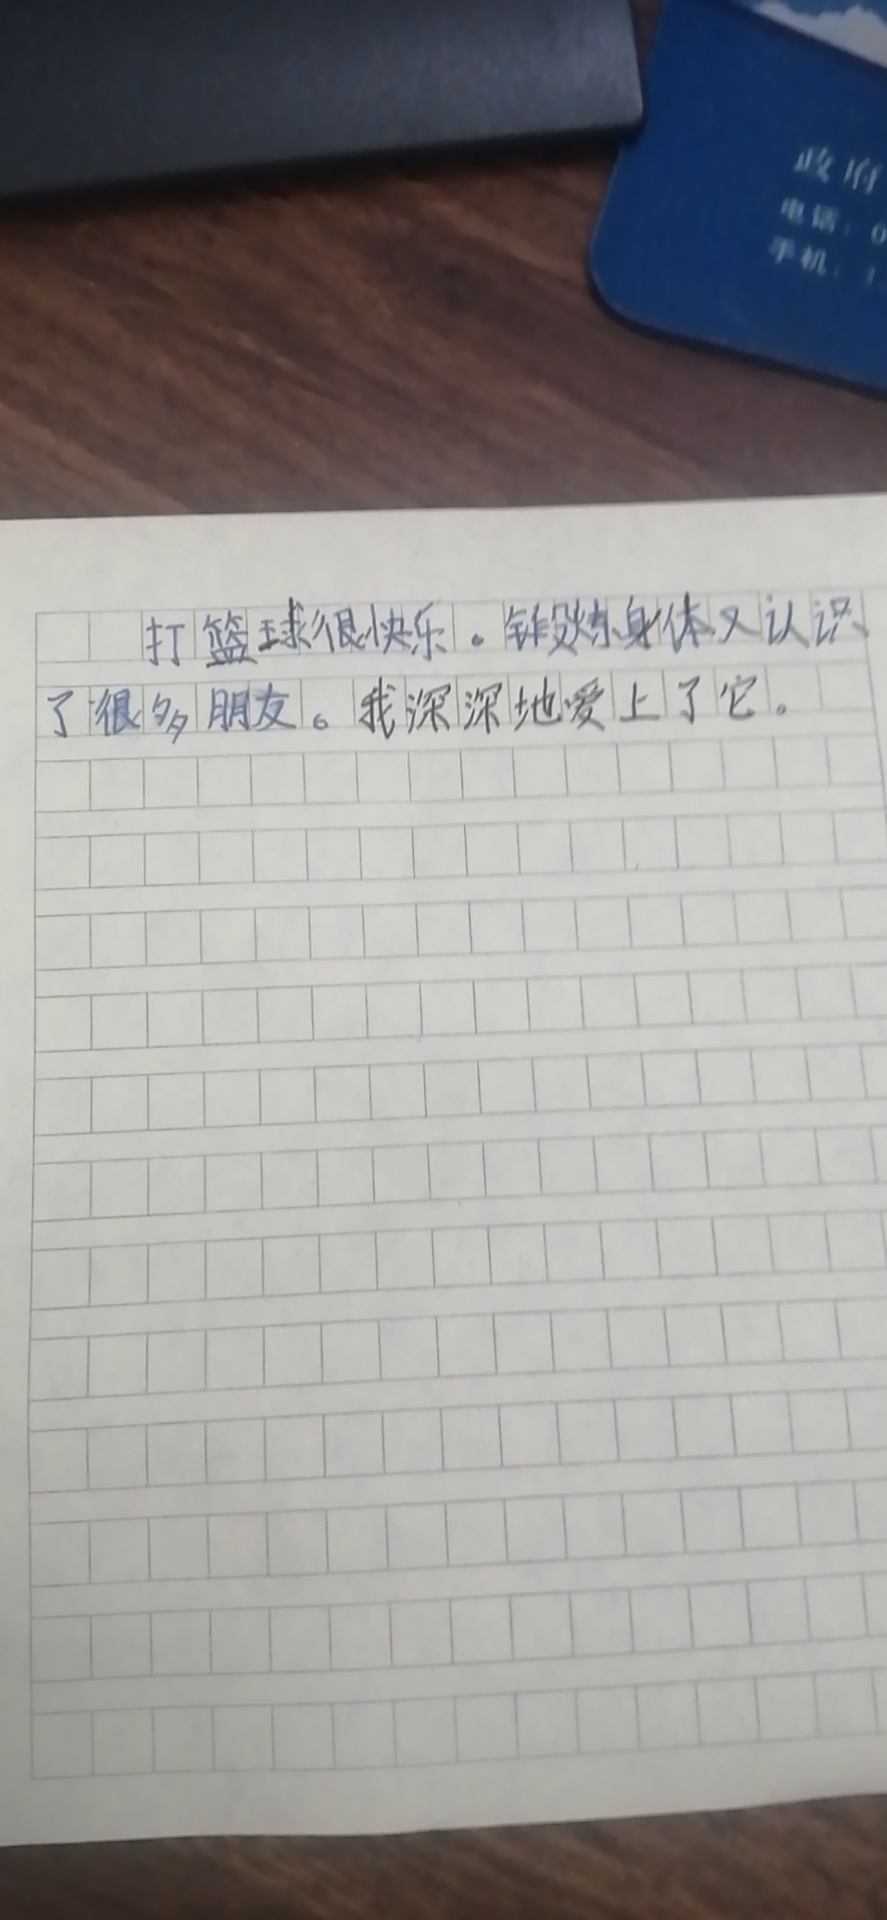 政府
电话：0
手机：1
打篮球很快乐。锻炼身体又认识
了很多朋友。我深深地爱上了它。